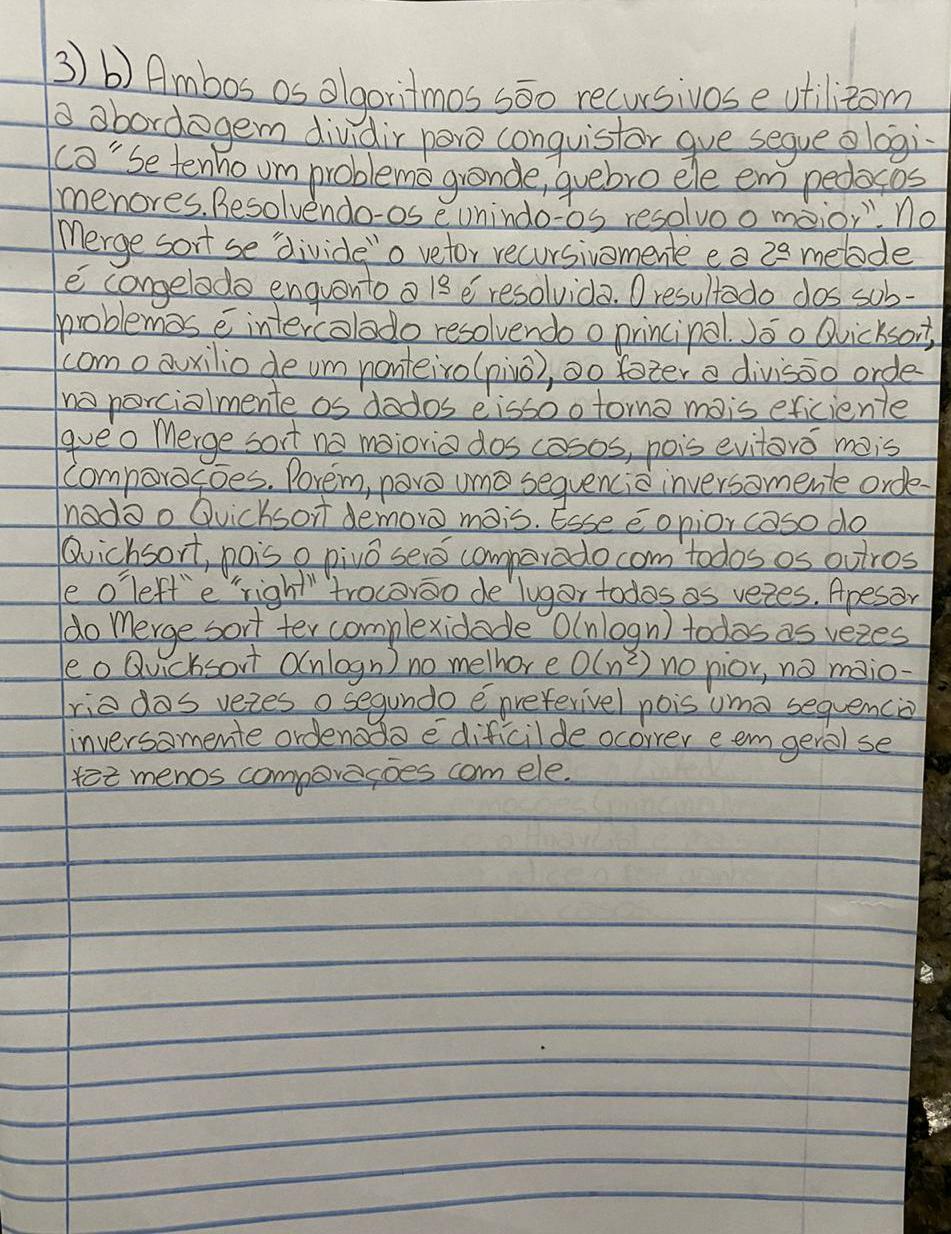 3) b) Ambos os algoritmos são recursivos e utilizam
a abordagem dividir para conquistar que segue a lógi-
ca "se tenho um problema grande, quebro ele em pedaços
menores. Resolvendo-os e unindo-os resolvo o maior". No
Merge sort se "divide" o vetor recursivamente e a 2ª metade
é congelada enquanto a 1ª é resolvida. O resultado dos sub-
problemas é intercalado resolvendo o principal. Já o Quicksort,
com o auxilio de um ponteiro (pivô), ao fazer a divisão orde-
na parcialmente os dados e isso o torna mais eficiente
que o Merge sort na maioria dos casos, pois evitará mais
comparações. Porém, para uma sequencia inversamente orde-
nada o Quicksort demora mais. Esse é o pior caso do
Quicksort, pois o pivô será comparado com todos os outros
e o "left" e "right" trocarão de lugar todas as vezes. Apesar
do Merge sort ter complexidade O(nlogn) todas as vezes
e o Quicksort O(nlogn) no melhor e O(n²) no pior, na maio-
ria das vezes o segundo é preferível pois uma sequencia
inversamente ordenada é difícil de ocorrer e em geral se
faz menos comparações com ele.